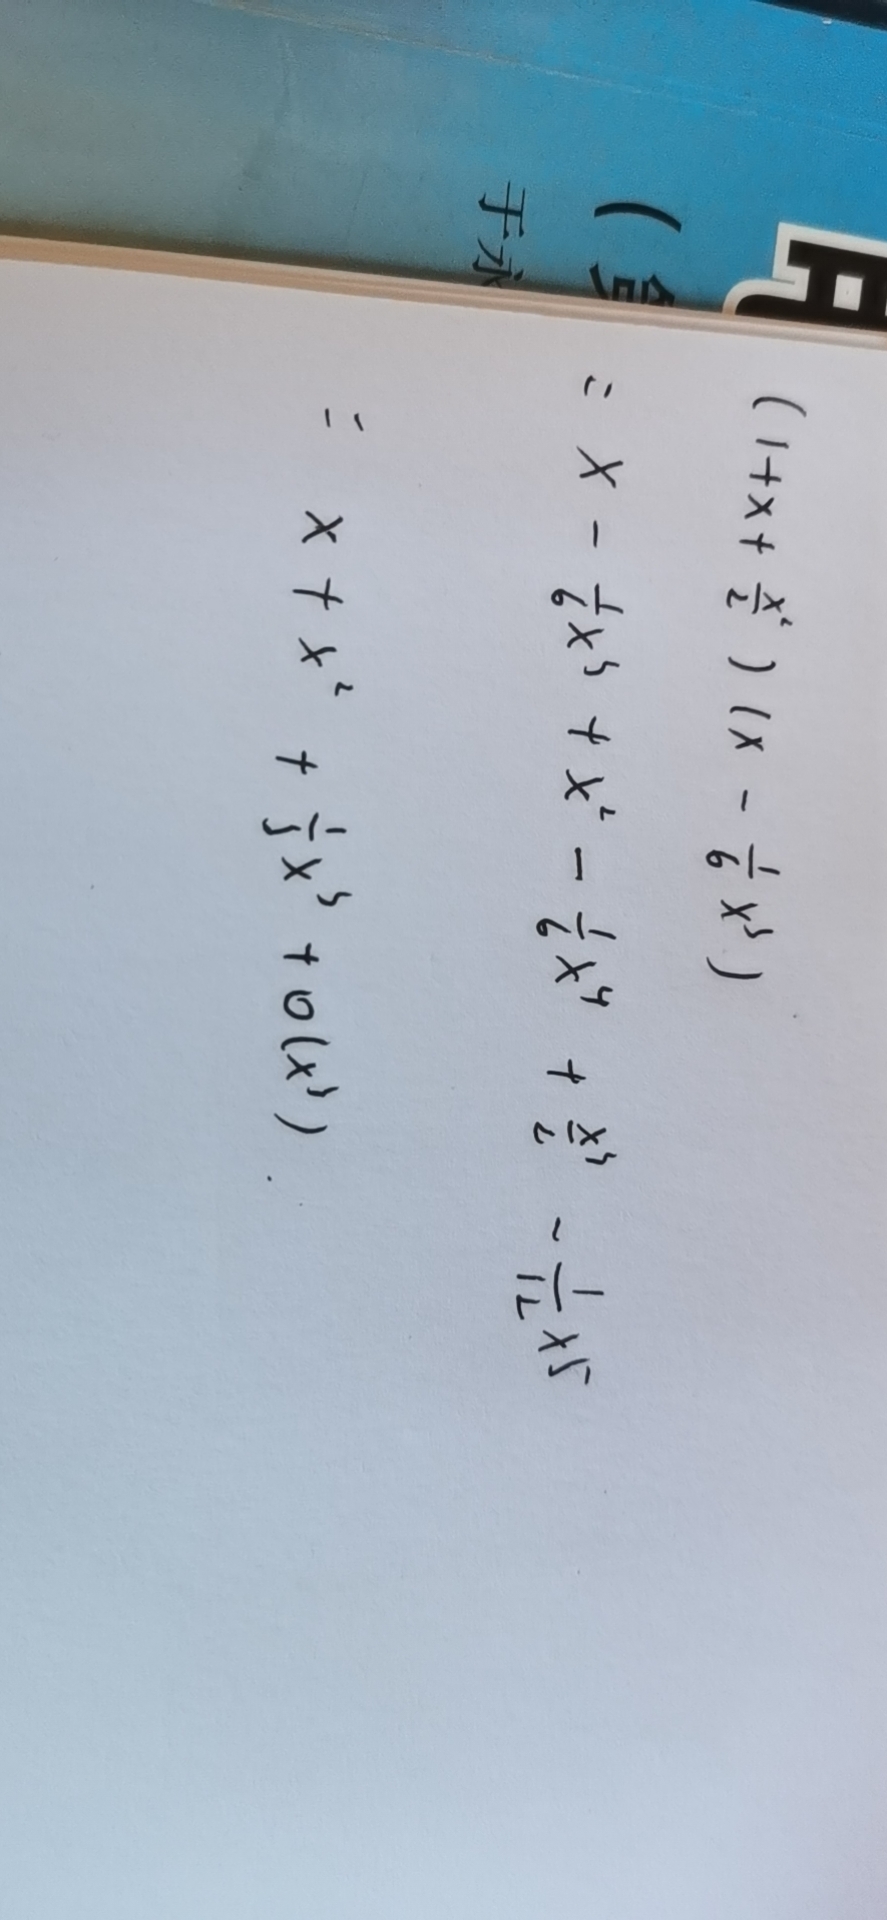 (1+x+x²/2)(x-1/6x³)
= x - 1/6x³ + x² - 1/6x⁴ + x³/2 - 1/12x⁵
= x + x² + 1/3x³ + o(x³).